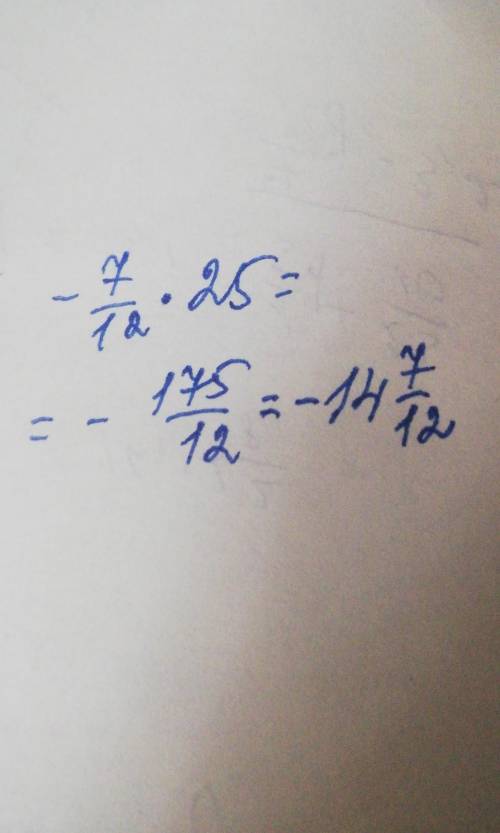 - 7/12 · 25 =
= - 175/12 = - 14 7/12